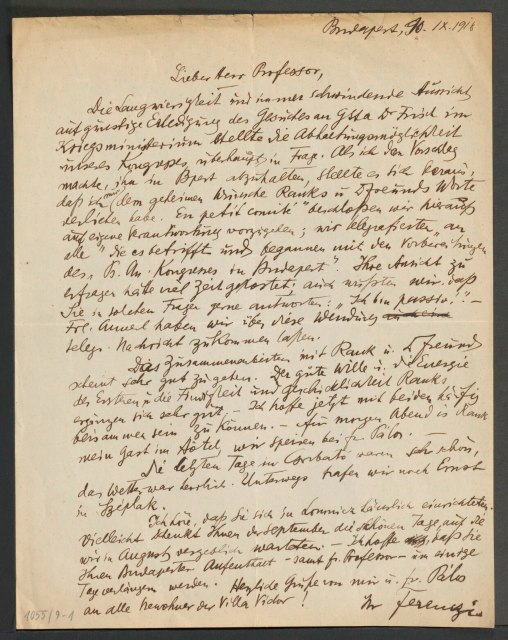 Budapest, 10. IX. 1918
Lieber Herr Professor,
Die Langwierigkeit und immer schwindende Aussicht
auf günstige Erledigung des Gesuches an Dr Frisch im
Kriegsministerium stellte die Abhaltungsmöglichkeit
unseres Kongresses überhaupt in Frage. Als ich den Vorschlag
machte, ihn in Bpest abzuhalten, stellte es sich heraus,
daß ich nur dem geheimen Wunsche Ranks u Dr Freunds Worte
verliehen habe. En petit comité beschloßen wir hierauf
auf eigene Verantwortung vorzugehen; wir telegrafierten „an
alle" die es betrifft und begannen mit den Vorbereitungen
des Kongresses in Budapest". Ihre Ansicht zu
erfragen hätte viel Zeit gekostet; auch wußten wir, daß
Sie in solchen Fragen gerne antworten: „Ich bin passiv!" –
Frl. Anna haben wir über diese Wendung
telegr. Nachricht zukommen lassen.
Das Zusammenarbeiten mit Rank u. Dr Freund
scheint sehr gut zu gehen. Der gute Wille u. die Energie
des Ersteren, die Findigkeit und Geschicklichkeit Ranks
ergänzen sich sehr gut. – Ich hoffe jetzt mit beiden häufig
beisammen sein zu können. – Für morgen Abend ist Rank
mein Gast im Hôtel, wir speisen bei Fr. Pálos.
Die letzten Tage im Csorbató waren sehr schön,
das Wetter war herrlich. Unterwegs trafen wir noch Ernst
in Széplak.
Ich höre, daß Sie sich in Lomnicz häuslich einrichteten.
Vielleicht schenkt Ihnen der September die schönen Tage, auf die
wir im August vergeblich warteten. – Ich hoffe, daß Sie
Ihren Budapester Aufenthalt – samt Fr. Professor – um einige
Tage verlängern werden. Herzliche Grüße von mir u. Fr. Pálos
an alle Bewohner der Villa Vidor!
Ihr Ferenczi
1055/9-1